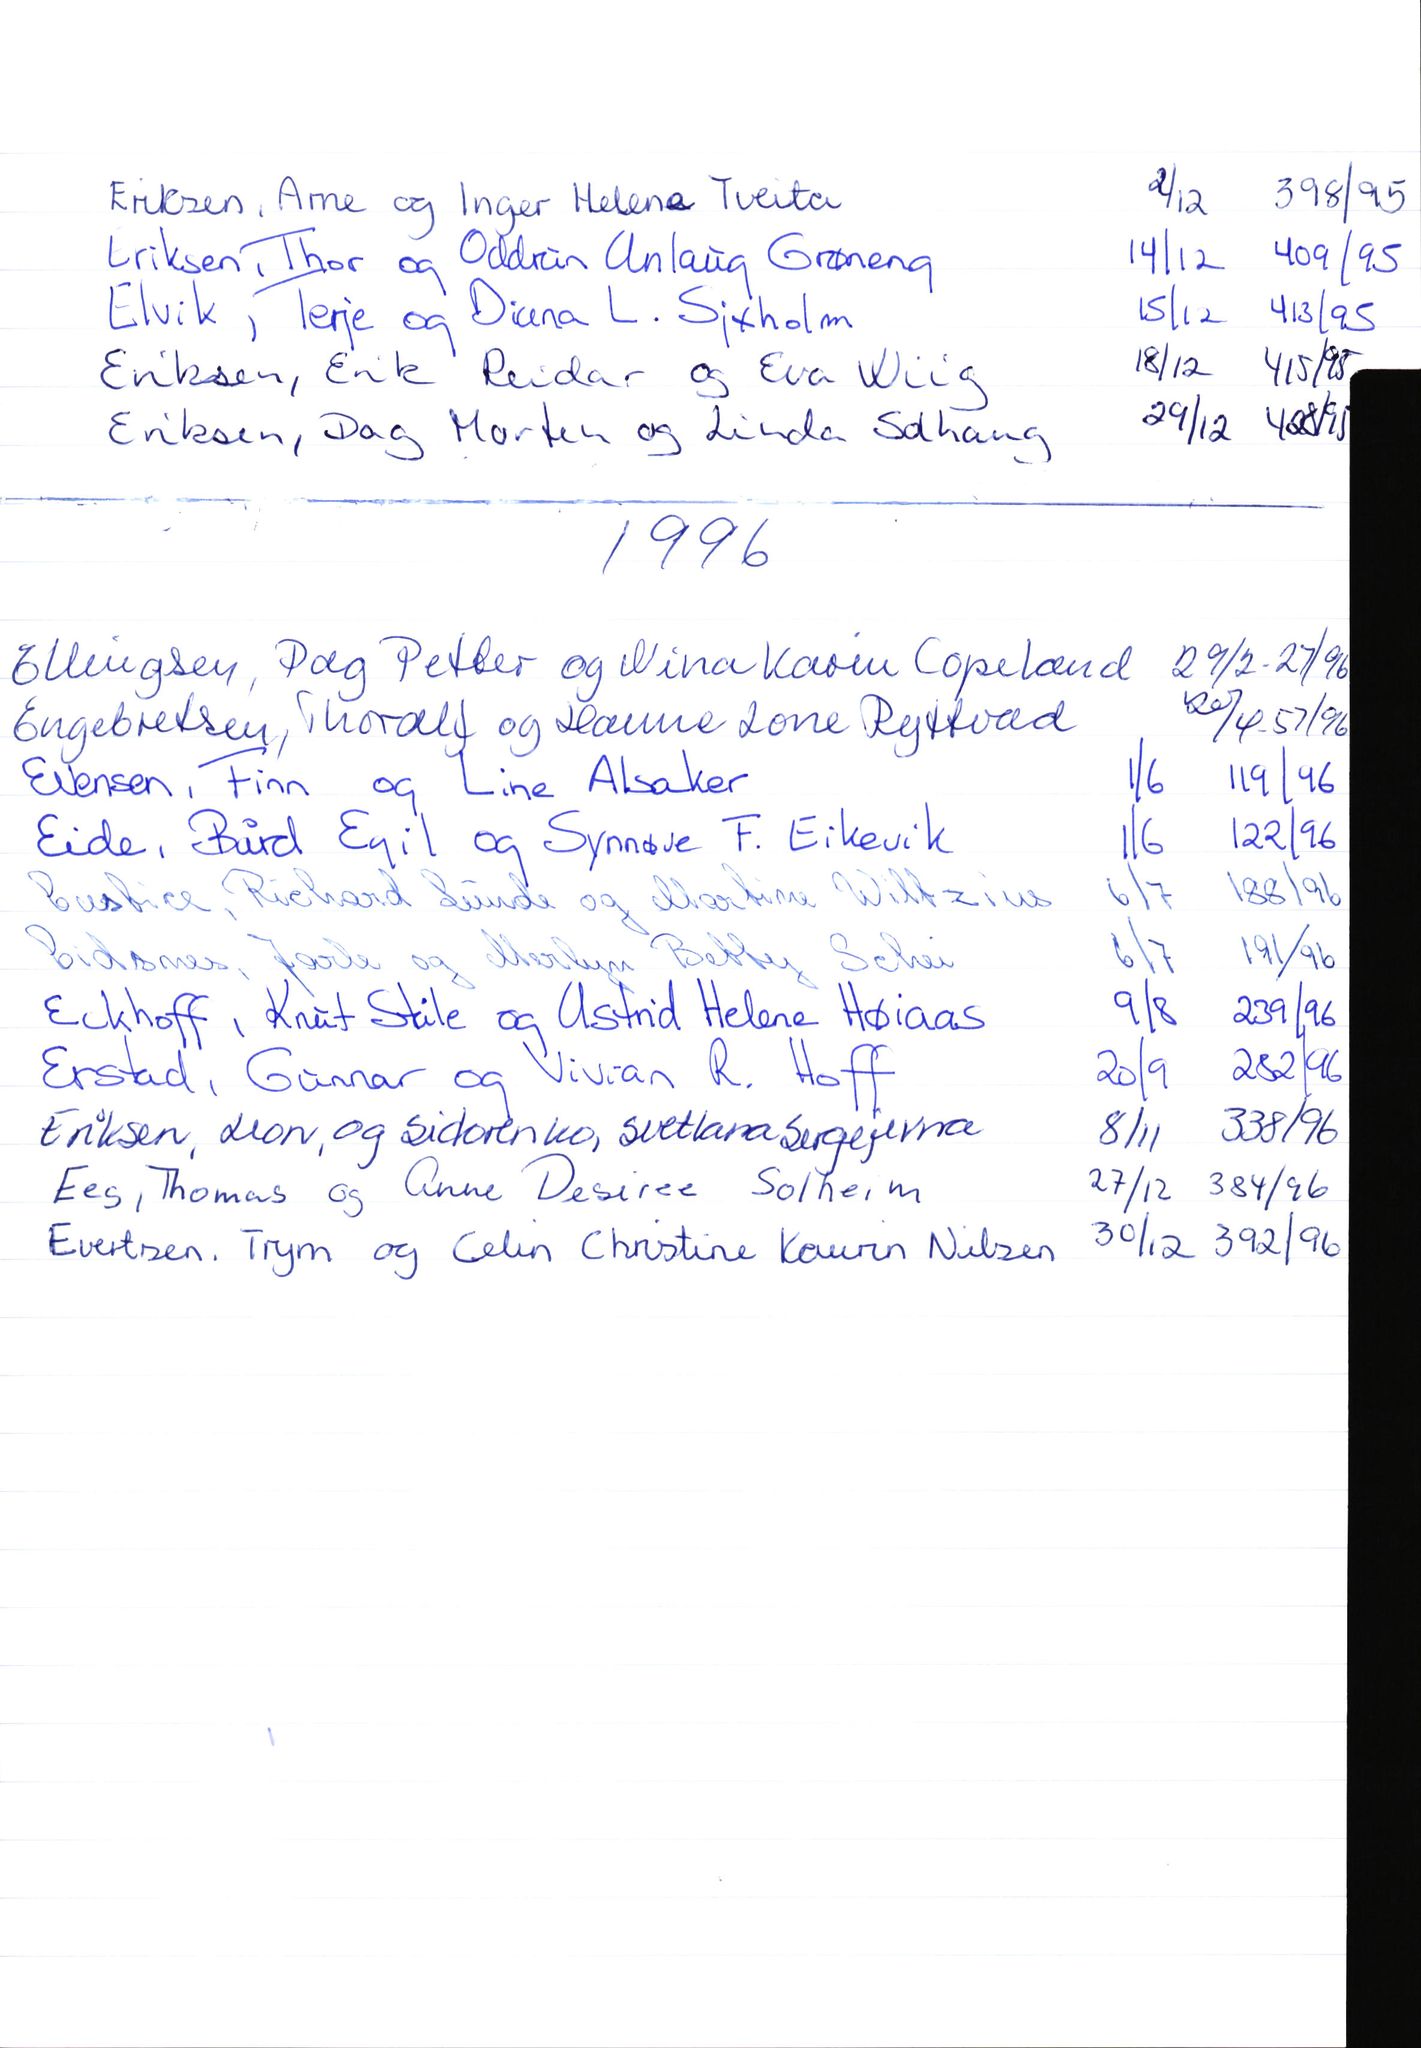 Eriksen, Arne og Inger Helene Tveita 2/12 398/95
Eriksen, Thor og Oddrün Anlaüg Grøneng 14/12 409/95
Elvik, Terje og Diana L. Sjxholm 15/12 413/95
Eriksen, Erik Reidar og Eva Wiig 18/12 415/95
Eriksen, Dag Morten og Linda Solhaug 29/12 428/95
1996
Ellingsen, Dag Petter og Nina Karin Copeland 29/2-27/96
Engebretsen, Thoralf og Hanne Lone Ryttvad /4-57/96
Evensen, Finn og Line Alsaker 1/6 119/96
Eide, Bård Egil og Synnøve F. Eikevik 1/6 122/96
Eustice, Richard Lünde og Martine Wiltzius 6/7 188/96
Eidsnes, Jarle og Merlyn Betty Schei 6/7 191/96
Eckhoff, Knüt Ståle og Astrid Helene Høiaas 9/8 239/96
Erstad, Günnar og Vivian R. Hoff 20/9 282/96
Eriksen, Leon, og Sidorenko, Svetlana Sergejevna 8/11 338/96
Eeg, Thomas og Anne Desiree Solheim 27/12 384/96
Evertsen. Trym og Celin Christine Kaurin Nilsen 30/12 392/96